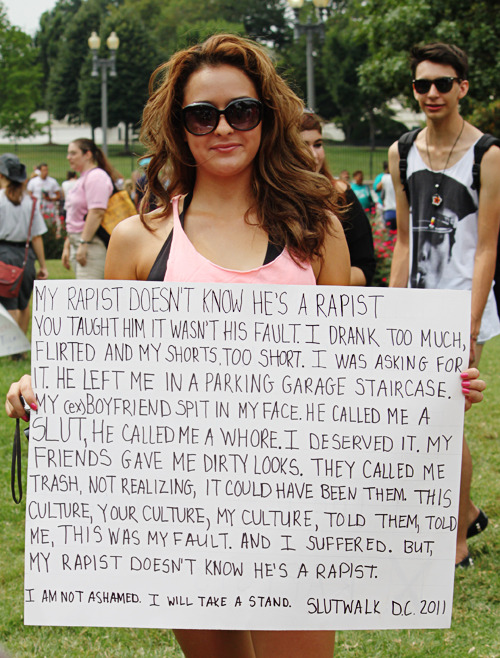 MY RAPIST DOESN'T KNOW HE'S A RAPIST
YOU TAUGHT HIM IT WASN'T HIS FAULT. I DRANK TOO MUCH,
FLIRTED AND MY SHORTS, TOO SHORT. I WAS ASKING FOR
IT. HE LEFT ME IN A PARKING GARAGE STAIRCASE.
MY (ex)BOYFRIEND SPIT IN MY FACE. HE CALLED ME A
SLUT, HE CALLED ME A WHORE. I DESERVED IT. MY
FRIENDS GAVE ME DIRTY LOOKS. THEY CALLED ME
TRASH, NOT REALIZING, IT COULD HAVE BEEN THEM. THIS
CULTURE, YOUR CULTURE, MY CULTURE, TOLD THEM, TOLD
ME, THIS WAS MY FAULT. AND I SUFFERED. BUT,
MY RAPIST DOESN'T KNOW HE'S A RAPIST.
I AM NOT ASHAMED. I WILL TAKE A STAND. SLUTWALK D.C. 2011